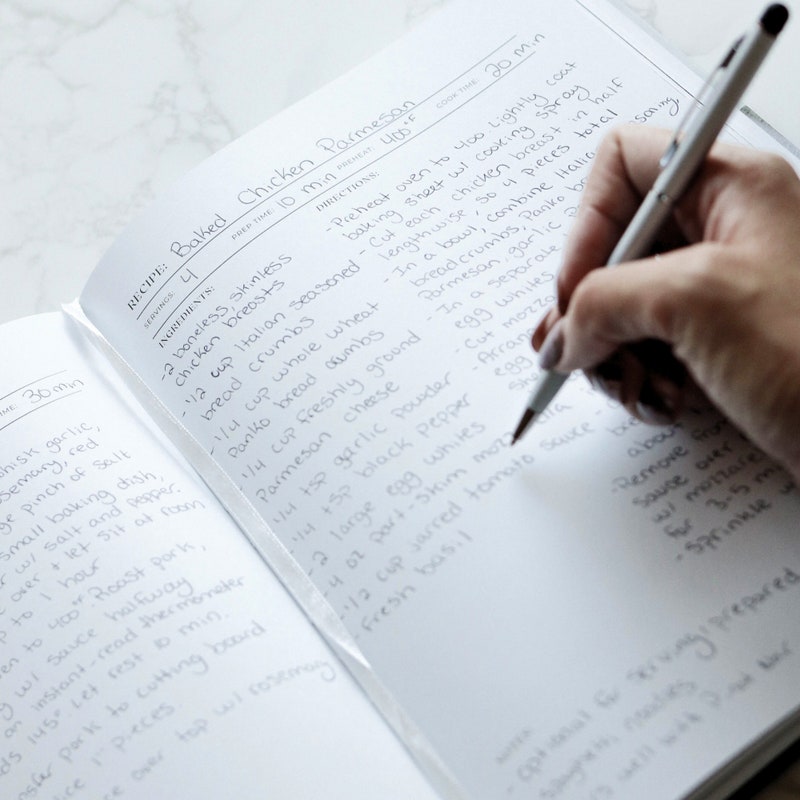 TIME: 30 min
whisk garlic,
rosemary, red
pinch of salt
small baking dish,
w/ salt and pepper.
over + let sit at room
to 1 hour
to 400°F. Roast pork,
w/ sauce halfway
an instant-read thermometer
145° Let rest 10 min.
pork to cutting board
1" pieces
over top w/ rosemary
RECIPE: Baked Chicken Parmesan
SERVINGS: 4 PREP TIME: 10 min PREHEAT: 400°F COOK TIME: 20 min
INGREDIENTS:
-2 boneless, skinless
chicken breasts
-1/2 cup Italian seasoned
bread crumbs
-1/4 cup whole wheat
Panko bread crumbs
-1/4 cup freshly ground
Parmesan cheese
-1/4 tsp garlic powder
-1/4 tsp black pepper
-2 large egg whites
-4 oz part-skim mozzarella
-1/2 cup jarred tomato sauce
fresh basil
DIRECTIONS:
-Preheat oven to 400. Lightly coat
baking sheet w/ cooking spray
-Cut each chicken breast in half
lengthwise, so 4 pieces total
-In a bowl, combine
breadcrumbs, Panko
Parmesan, garlic
-In a separate
egg whites
-Cut
egg
about
-Remove from
sauce over
w/ mozzarella
for 3-5 min
-Sprinkle w/
NOTES
-optional for serving: prepared
spaghetti noodles